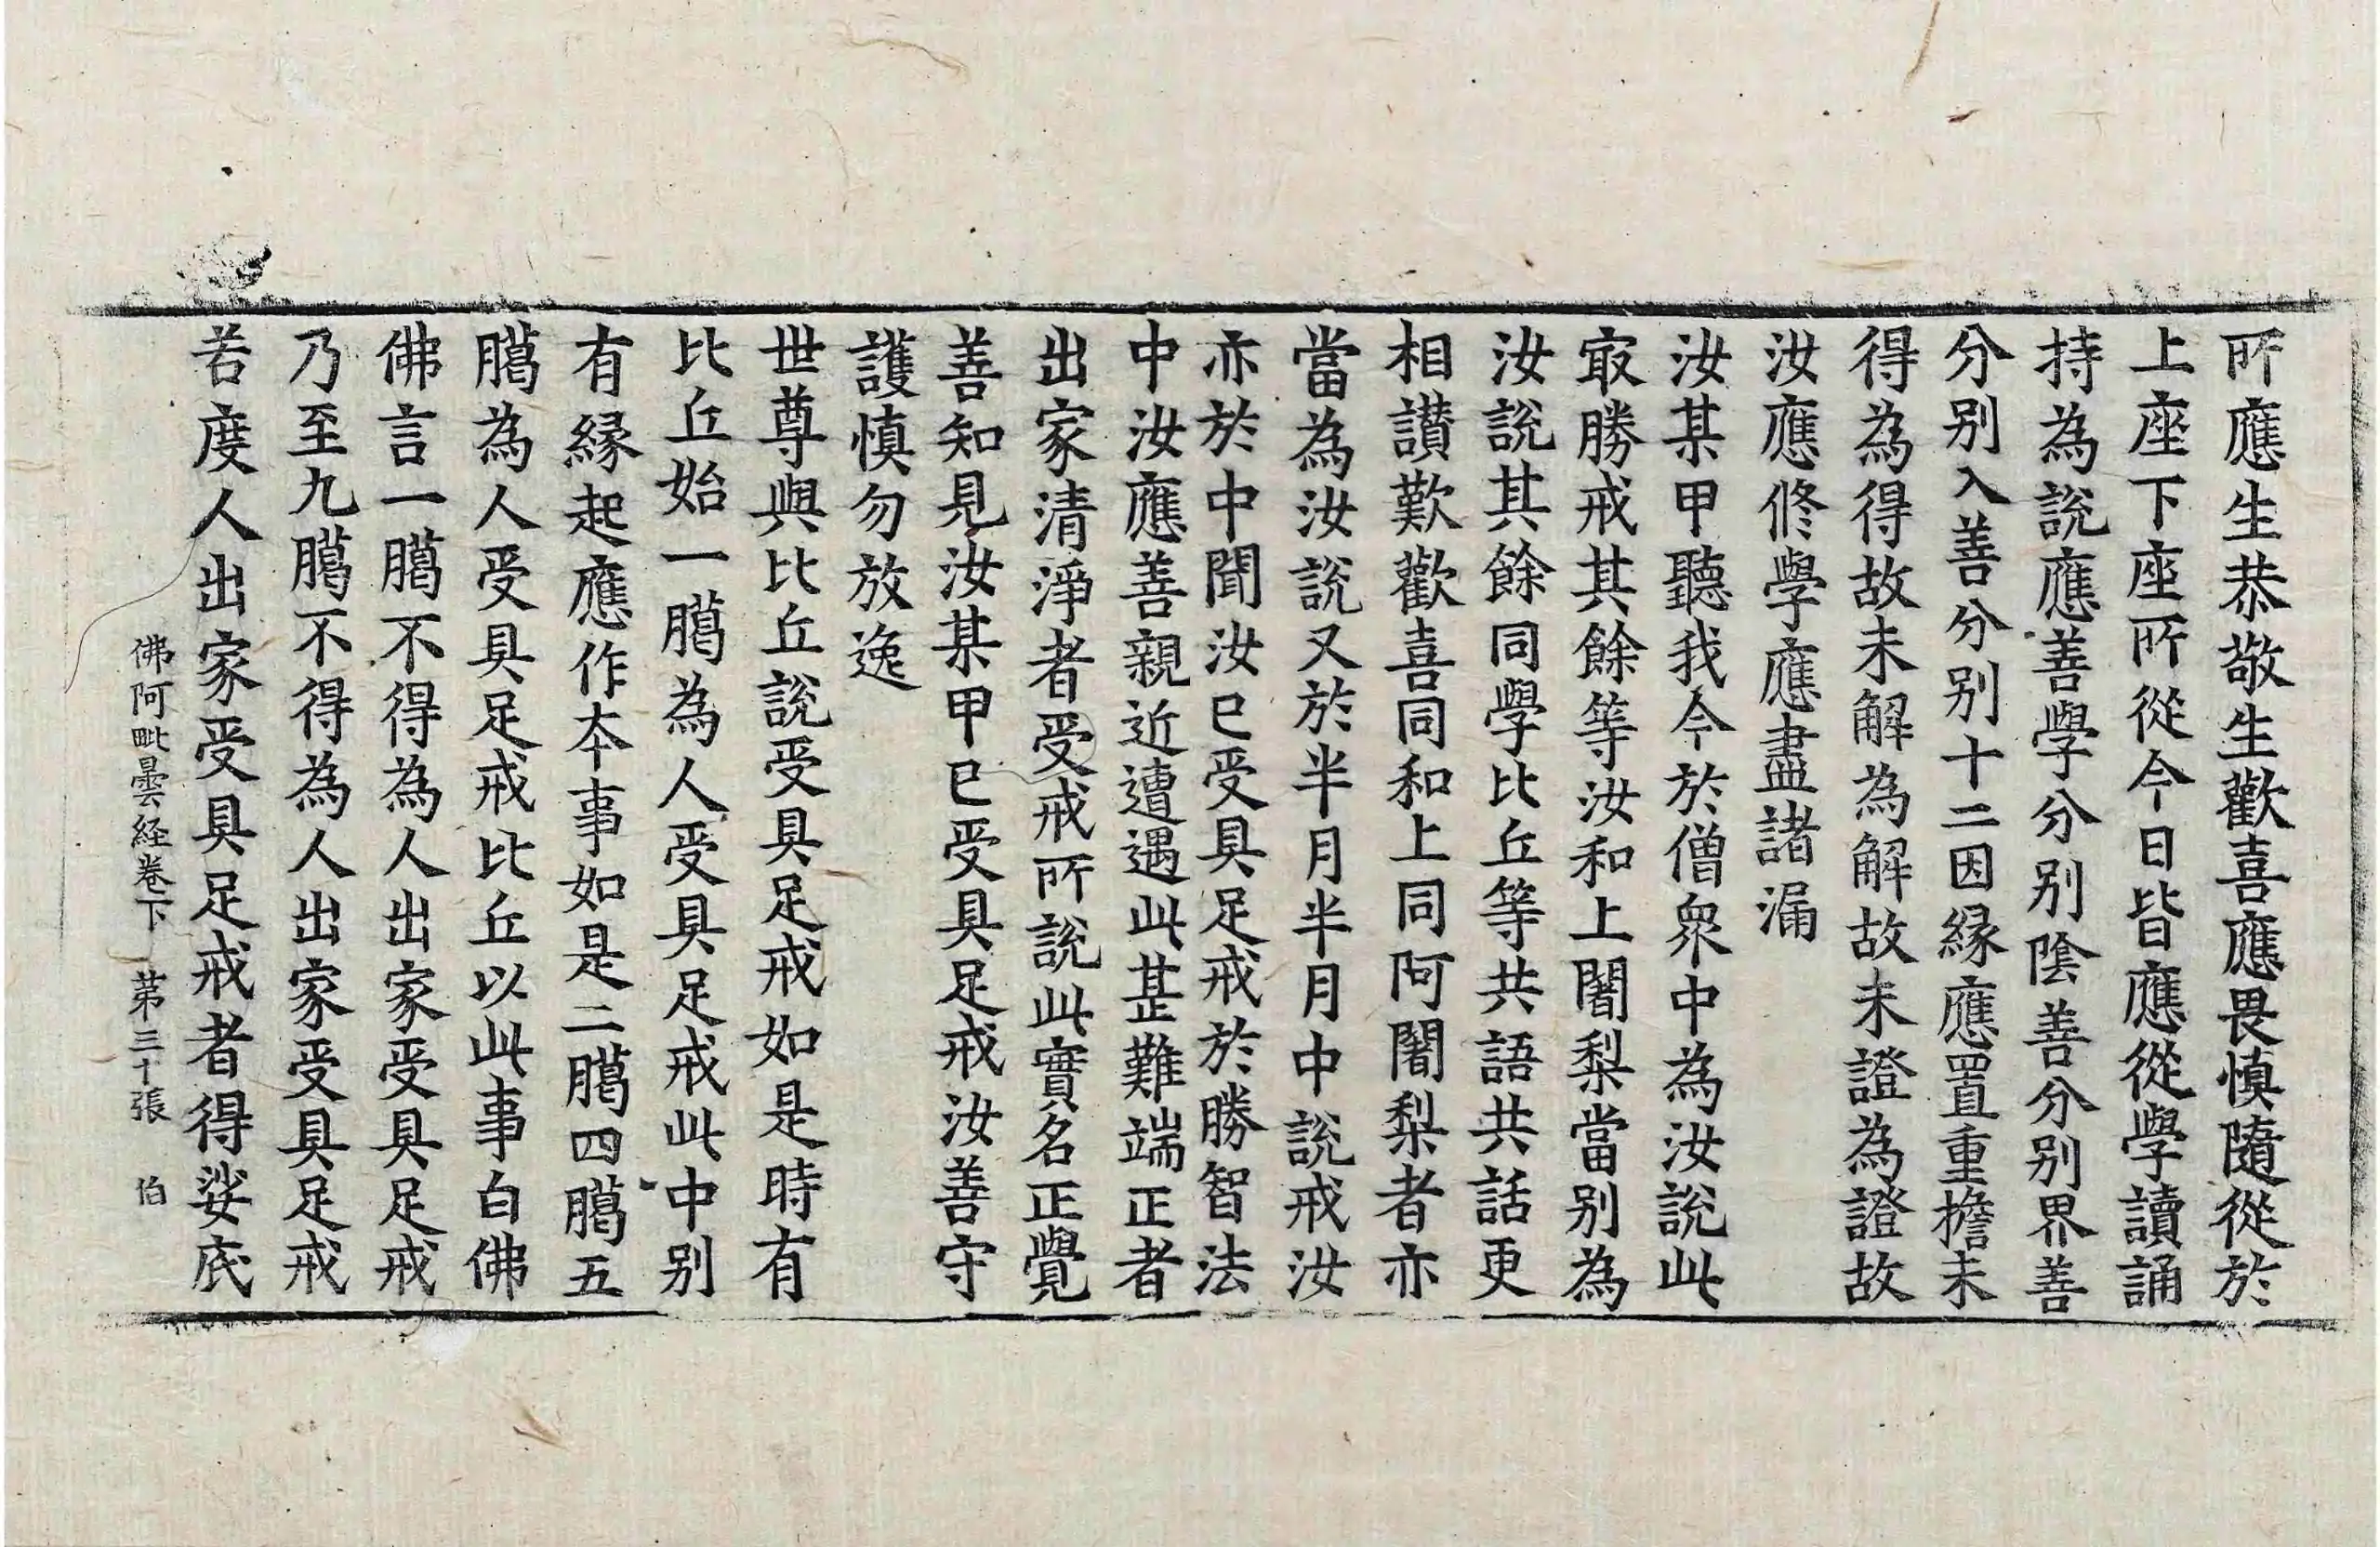 所應生恭敬生歡喜應畏慎隨從於
上座下座所從今日皆應從學讀誦
持為說應善學分別陰善分別界善
分別入善分別十二因緣應置重擔未
得為得故未解為解故未證為證故
汝應修學應盡諸漏
汝某甲聽我今於僧眾中為汝說此
㝡勝戒其餘等汝和上闍梨當別為
汝說其餘同學比丘等共語共話更
相讚歎歡喜同和上同阿闍梨者亦
當為汝說又於半月半月中說戒汝
亦於中聞汝已受具足戒於勝智法
中汝應善親近遭遇此甚難端正者
出家清淨者受戒所說此實名正覺
善知見汝某甲已受具足戒汝善守
護慎勿放逸
世尊與比丘說受具足戒如是時有
比丘始一臈為人受具足戒此中別
有緣起應作本事如是二臈四臈五
臈為人受具足戒比丘以此事白佛
佛言一臈不得為人出家受具足戒
乃至九臈不得為人出家受具足戒
若度人出家受具足戒者得娑底
佛阿毗曇経卷下 第三十張 伯